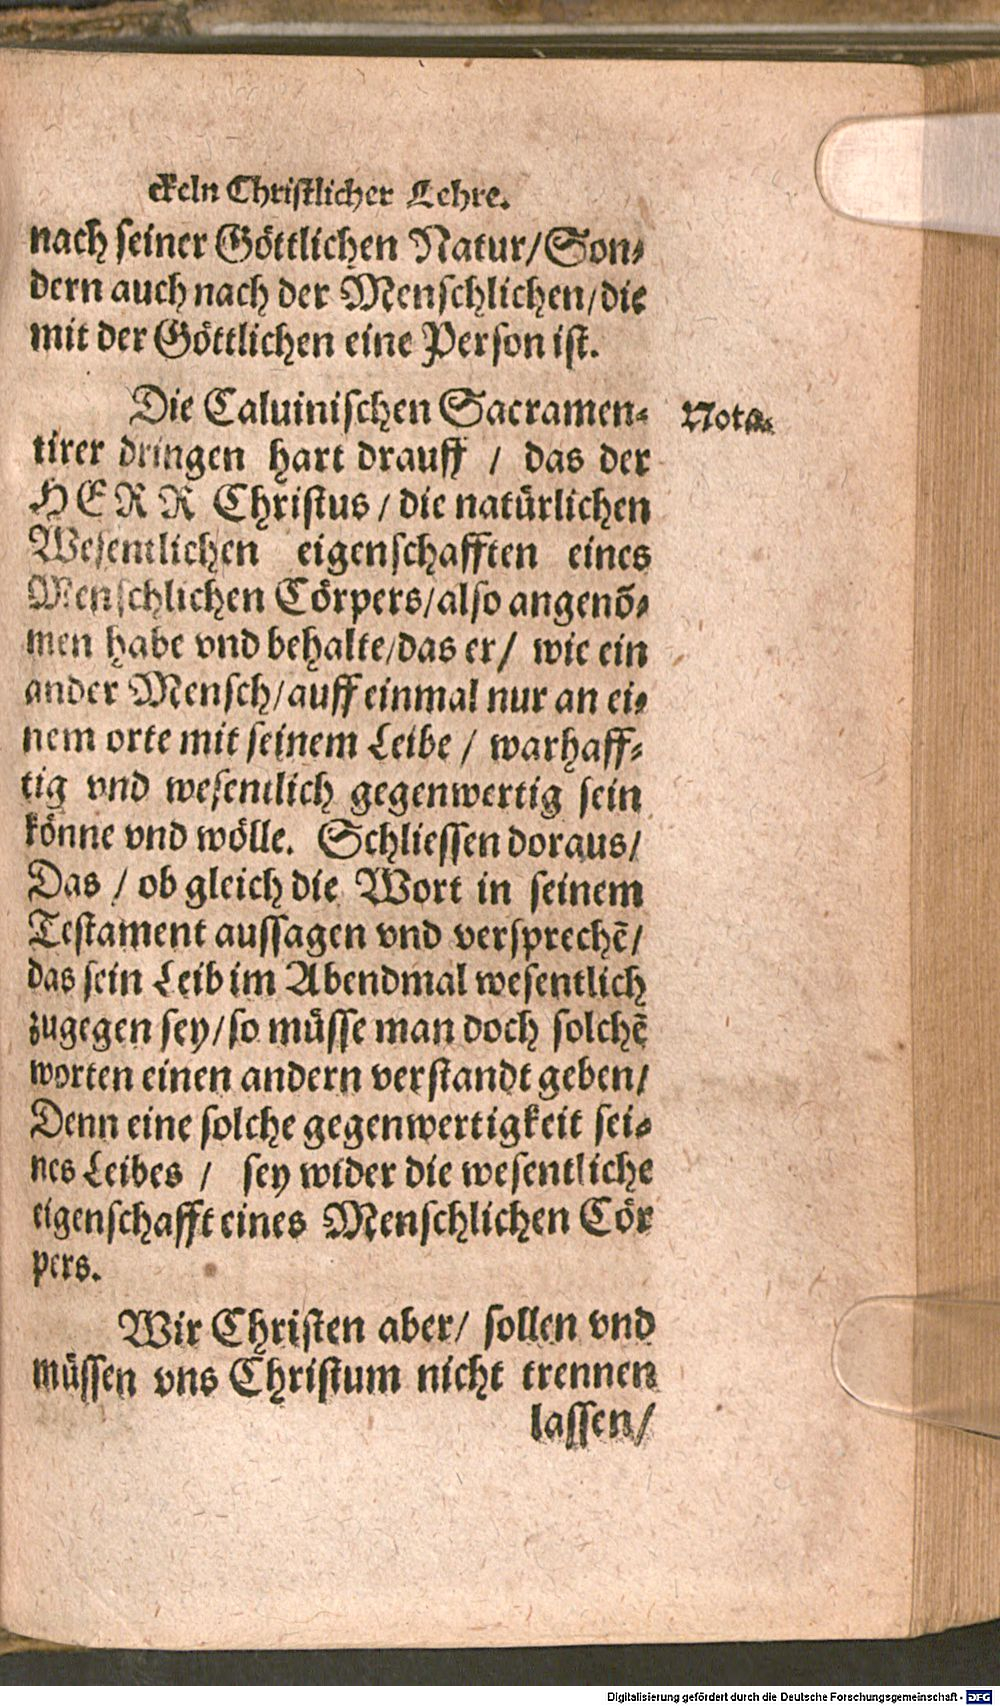 ckeln Christlicher Lehre.
nach seiner Göttlichen Natur/Son-
dern auch nach der Menschlichen/die
mit der Göttlichen eine Person ist.
Die Caluinischen Sacramen-
Nota.
tirer dringen hart drauff / das der
HERR Christus / die natürlichen
Wesentlichen eigenschafften eines
Menschlichen Cörpers/also angenõ-
men habe vnd behalte/das er/ wie ein
ander Mensch/auff einmal nur an ei-
nem orte mit seinem Leibe / warhaff-
tig vnd wesentlich gegenwertig sein
könne vnd wölle. Schliessen doraus/
Das / ob gleich die Wort in seinem
Testament aussagen vnd versprechẽ/
das sein Leib im Abendmal wesentlich
zugegen sey/so müsse man doch solchẽ
worten einen andern verstandt geben/
Denn eine solche gegenwertigkeit sei-
nes Leibes / sey wider die wesentliche
eigenschafft eines Menschlichen Cör
pers.
Wir Christen aber/ sollen vnd
müssen vns Christum nicht trennen
lassen/
Digitalisierung gefördert durch die Deutsche Forschungsgemeinschaft - DFG